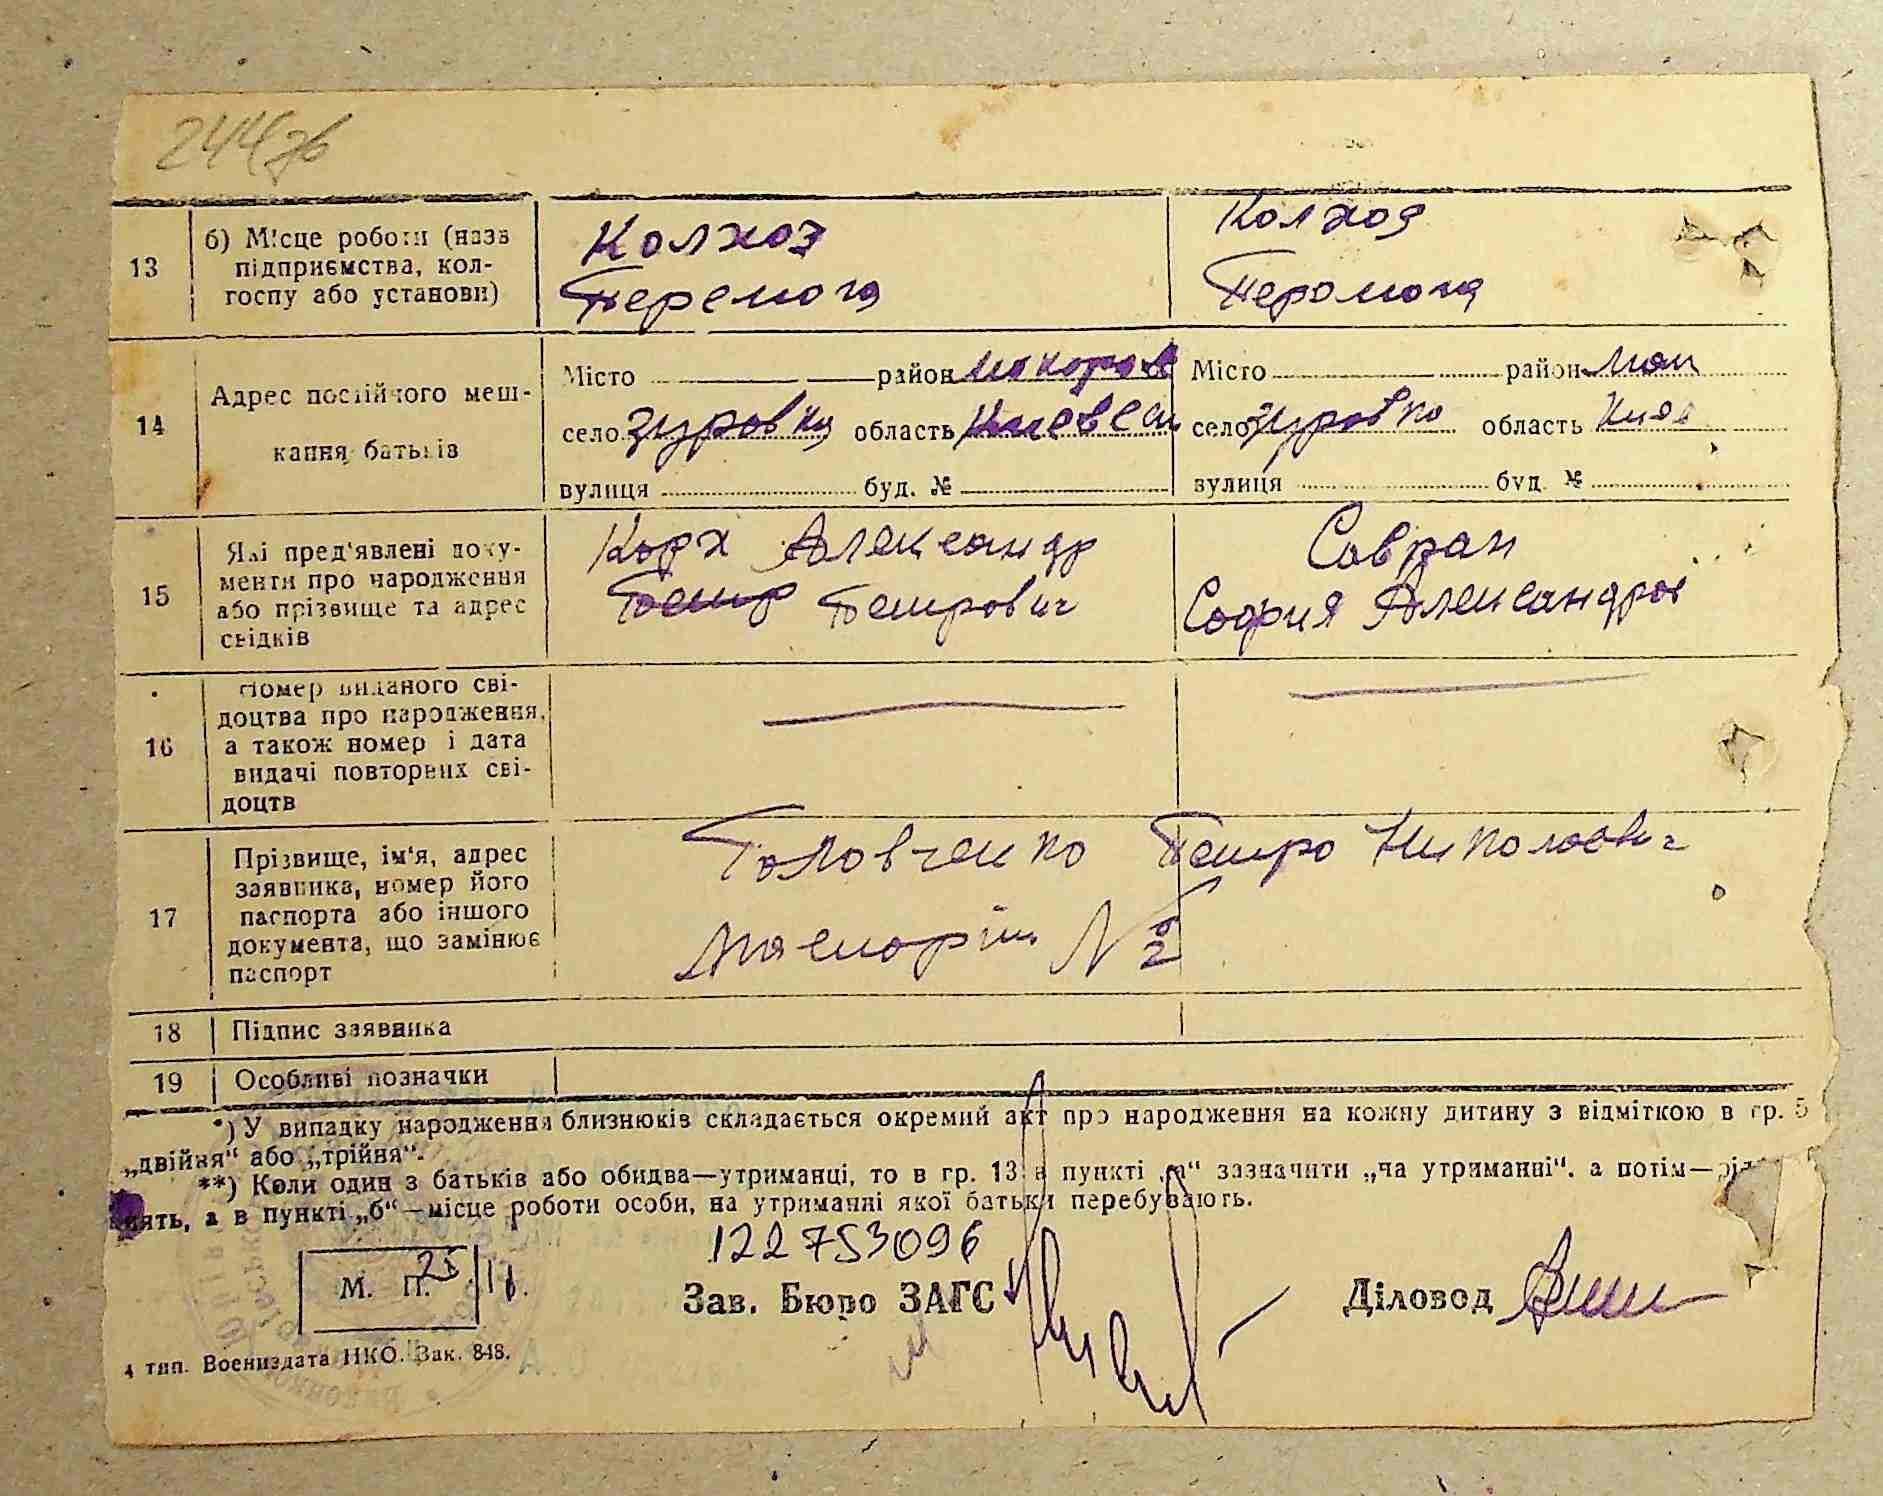 244 зв
13
б) Місце роботи (назв
підприємства, кол-
госпу або установи)
Колхоз
Перемога
Колхоз
Перомога
14
Адрес постійного меш-
кання батьків
Місто район Макаров
село Зуровка область Киевск
вулиця буд. №
Місто район Мак
село Зуровка область Киев
вулиця буд. №
15
Які пред'явлені доку-
менти про народження
або прізвище та адрес
свідків
Корх Александр
Петр Петрович
Савран
София Александров
16
Номер виданого сві-
доцтва про народження,
а також номер і дата
видачі повторних сві-
доцтв
17
Прізвище, ім'я, адрес
заявника, номер його
паспорта або іншого
документа, що замінює
паспорт
Головченко Петро Николаевич
18 Підпис заявника
19 Особливі позначки
*) У випадку народження близнюків складається окремий акт про народження на кожну дитину з відміткою в гр. 5
„двійня“ або „трійня“.
**) Коли один з батьків або обидва—утриманці, то в гр. 13 в пункті „а“ зазначити „на утриманні“, а потім—
нять, а в пункті „б“—місце роботи особи, на утриманні якої батьки перебувають.
122753096
М. П.
Зав. Бюро ЗАГС
Діловод
4 тип. Воениздата НКО. Зак. 848.